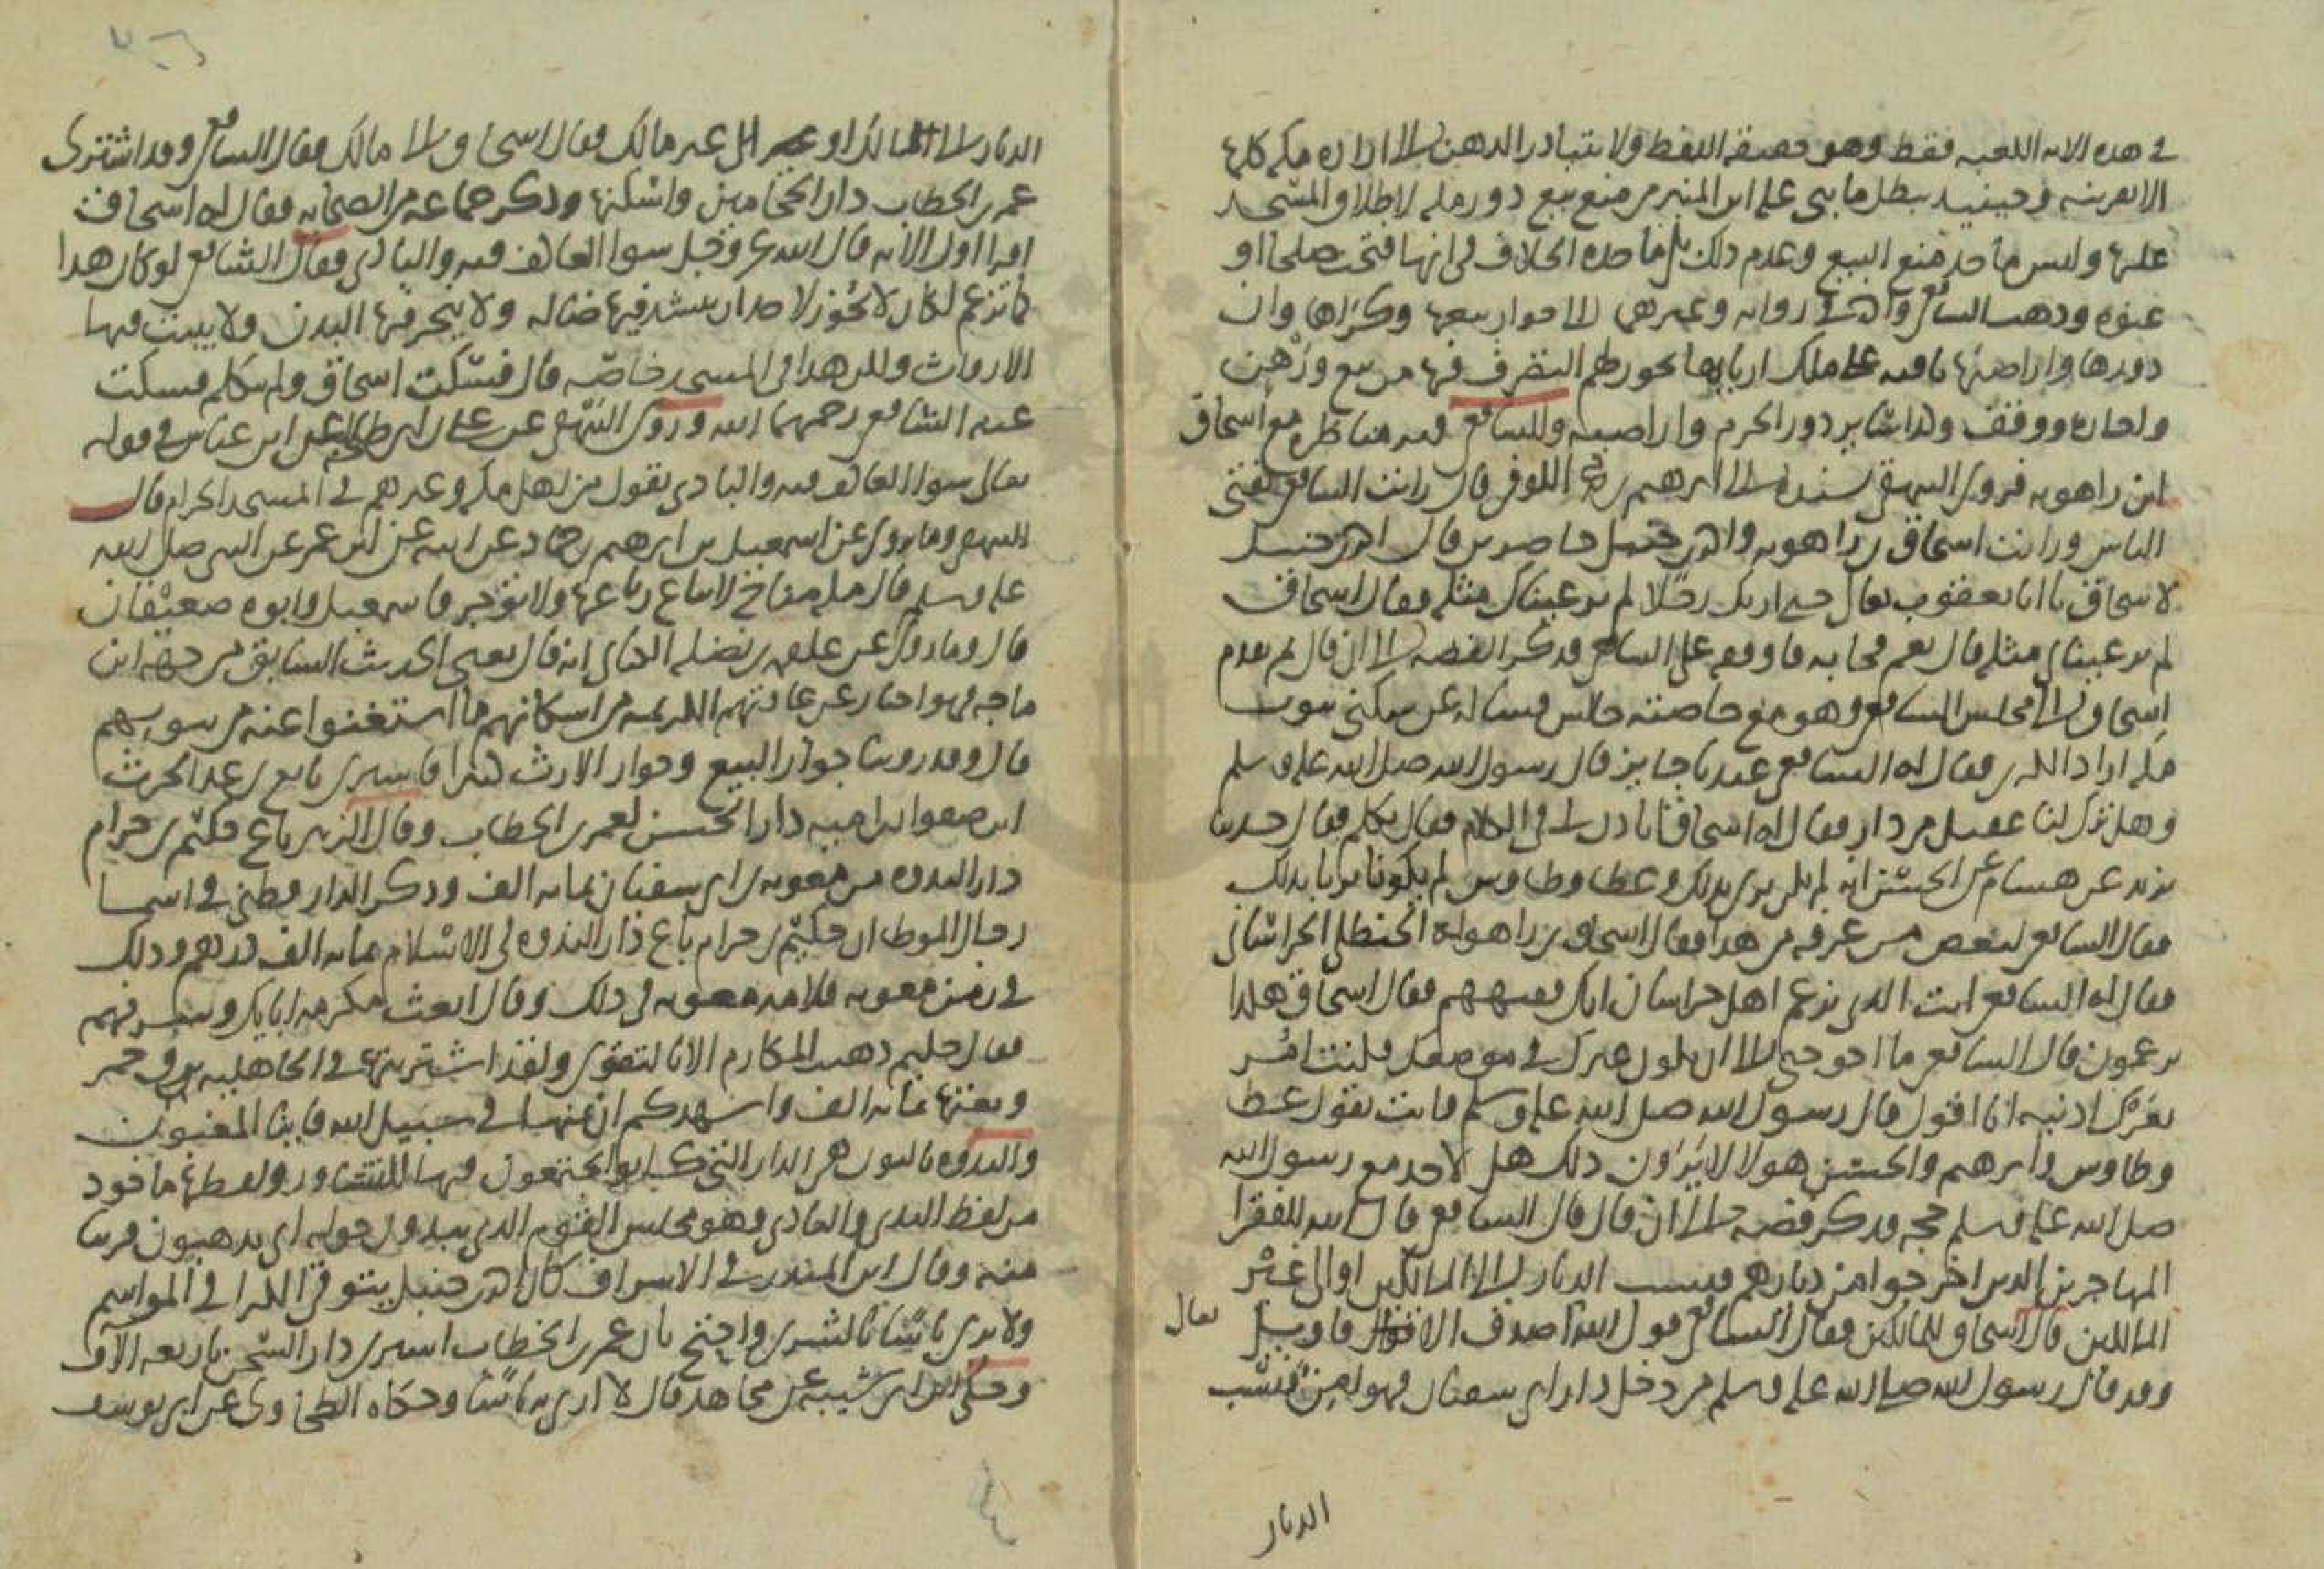 في هذه الآية الكعبة فقط وهو حقيقة اللفظ ولا يتبادر الذهن إلى إرادة مكة كلها
إلا بقرينة وحينئذ يبطل ما بنى عليه ابن المنير من منع بيع دور مكة لإطلاق المسجد
عليها وليس مأخذ منع البيع وعدم ذلك بل مأخذه الخلاف في أنها فتحت صلحا أو
عنوة وذهب الشافعي وأحمد في رواية وغيرهما إلى جواز بيعها وكراها وأن
دورها وأراضيها باقية على ملك أربابها يجوز لهم التصرف فيها من بيع ورهن
وإجارة ووقف وكذا سائر دور الحرم وأراضيه وللشافعي فيه مناظرة مع إسحاق
ابن راهويه فروى البيهقي بسنده إلى إبرهيم بن محمد الكوفي قال رأيت الشافعي يفتي
الناس ورأيت إسحاق بن راهويه وأحمد بن حنبل حاضرين قال أحمد بن حنبل
لإسحاق يا أبا يعقوب تعال حتى أريك رجلا لم تر عيناك مثله فقال إسحاق
لم تر عيناي مثله قال نعم فجاء به فأوقفه على الشافعي فذكر القصة إلى أن قال ثم تقدم
إسحاق إلى مجلس الشافعي وهو مع خاصته جالس فسأله عن سكنى بيوت
مكة أراد الكرى فقال له الشافعي عندنا جايز قال رسول الله صلى الله عليه وسلم
وهل ترك لنا عقيل من دار فقال له إسحاق أتأذن لي في الكلام فقال تكلم فقال حدثنا
يزيد عن هشام عن الحسن أنه لم يكن يرى بذلك وعطا وطاوس لم يكونا يريا بذلك
فقال الشافعي لبعض من عرفه من هذا فقال إسحاق بن راهويه الحنظلي الخراساني
فقال له الشافعي أنت الذي يزعم أهل خراسان أنك فقيههم فقال إسحاق هكذا
يزعمون قال الشافعي ما أحوجني إلى أن يكون غيرك في موضعك فكنت آمر
بعرك أذنيه أنا أقول قال رسول الله صلى الله عليه وسلم وأنت تقول عطا
وطاوس وإبرهيم والحسن هولا لا يرون ذلك هل لأحد مع رسول الله
صلى الله عليه وسلم حجة وذكر قصة إلى أن قال قال الشافعي قال الله للفقرا
المهاجرين الذين أخرجوا من ديارهم فينسب الديار إلى المالكين أو إلى غير
المالكين قال إسحاق للمالكين فقال الشافعي قول الله أصدق الأقوال
تعالى
وقد قال رسول الله صلى الله عليه وسلم من دخل دار أبي سفيان فهو آمن فنسب
الديار
الديار إلى المالك أو إلى غير مالك فقال إسحاق إلى مالك فقال الشافعي وقد اشترى
عمر بن الخطاب دار الحجامين وأسكنها وذكر جماعة من الصحابة فقال له إسحاق
اقرأ أول الآية قال الله عز وجل سوا العاكف فيه والبادي فقال الشافعي لو كان هذا
كما تزعم لكان لا يجوز لأحد أن ينشد فيها ضالة ولا ينحر فيها البدن ولا يبيت فيها
الأرواث ولكن هذا في المسجد خاصة قال فسكت إسحاق ولم يتكلم فسكت
عنه الشافعي رحمهما الله وروى البيهقي عن علي بن أبي طلحة عن ابن عباس في قوله
تعالى سوا العاكف فيه والبادي يقول من أهل مكة وغيرهم في المسجد الحرام قال
البيهقي وما يروى عن إسمعيل بن إبرهيم بن مهاجر عن أبيه عن ابن عمر عن النبي صلى الله
عليه وسلم قال مكة مناخ لا تباع رباعها ولا تؤجر فإسمعيل وأبوه ضعيفان
قال وما روى عن علقمة بن نضلة الكناني أنه قال يعني الحديث السابق من جهة ابن
ماجه فهو إخبار عن عادتهم الكريمة من إسكانهم ما استغنوا عنه من بيوتهم
قال وقد روينا جواز البيع وجواز الإرث فيها فاشترى نافع بن عبد الحرث
ابن صفوان بن أمية دار السجن لعمر بن الخطاب وقال الزبير باع حكيم بن حزام
دار الندوة من معوية بن أبي سفيان بماية ألف وذكر الدارقطني في أسما
رجال الموطا أن حكيم بن حزام باع دار الندوة في الإسلام بماية ألف درهم وذلك
في زمن معوية فلامه معوية في ذلك وقال أبعت مكرمة آبايك وشرفهم
فقال حكيم ذهبت المكارم إلا التقوى ولقد اشتريتها في الجاهلية بزق خمر
وبعتها بماية ألف وأشهدكم أن ثمنها في سبيل الله فأينا المغبون
والندوة بالنون هي الدار التي كانوا يجتمعون فيها للتشاور ولفظها مأخوذ
من لفظ الندي والنادي وهو مجلس القوم الذي يندون حوله أي يذهبون قريبا
منه وقال ابن المنذر في الإشراف كان أحمد بن حنبل يتوقى الكرا في المواسم
ولا يرى بأسا بالشرى واحتج بأن عمر بن الخطاب اشترى دار السجن بأربعة آلاف
وحكى ابن أبي شيبة عن مجاهد قال لا أرى به بأسا وحكاه الطحاوي عن أبي يوسف